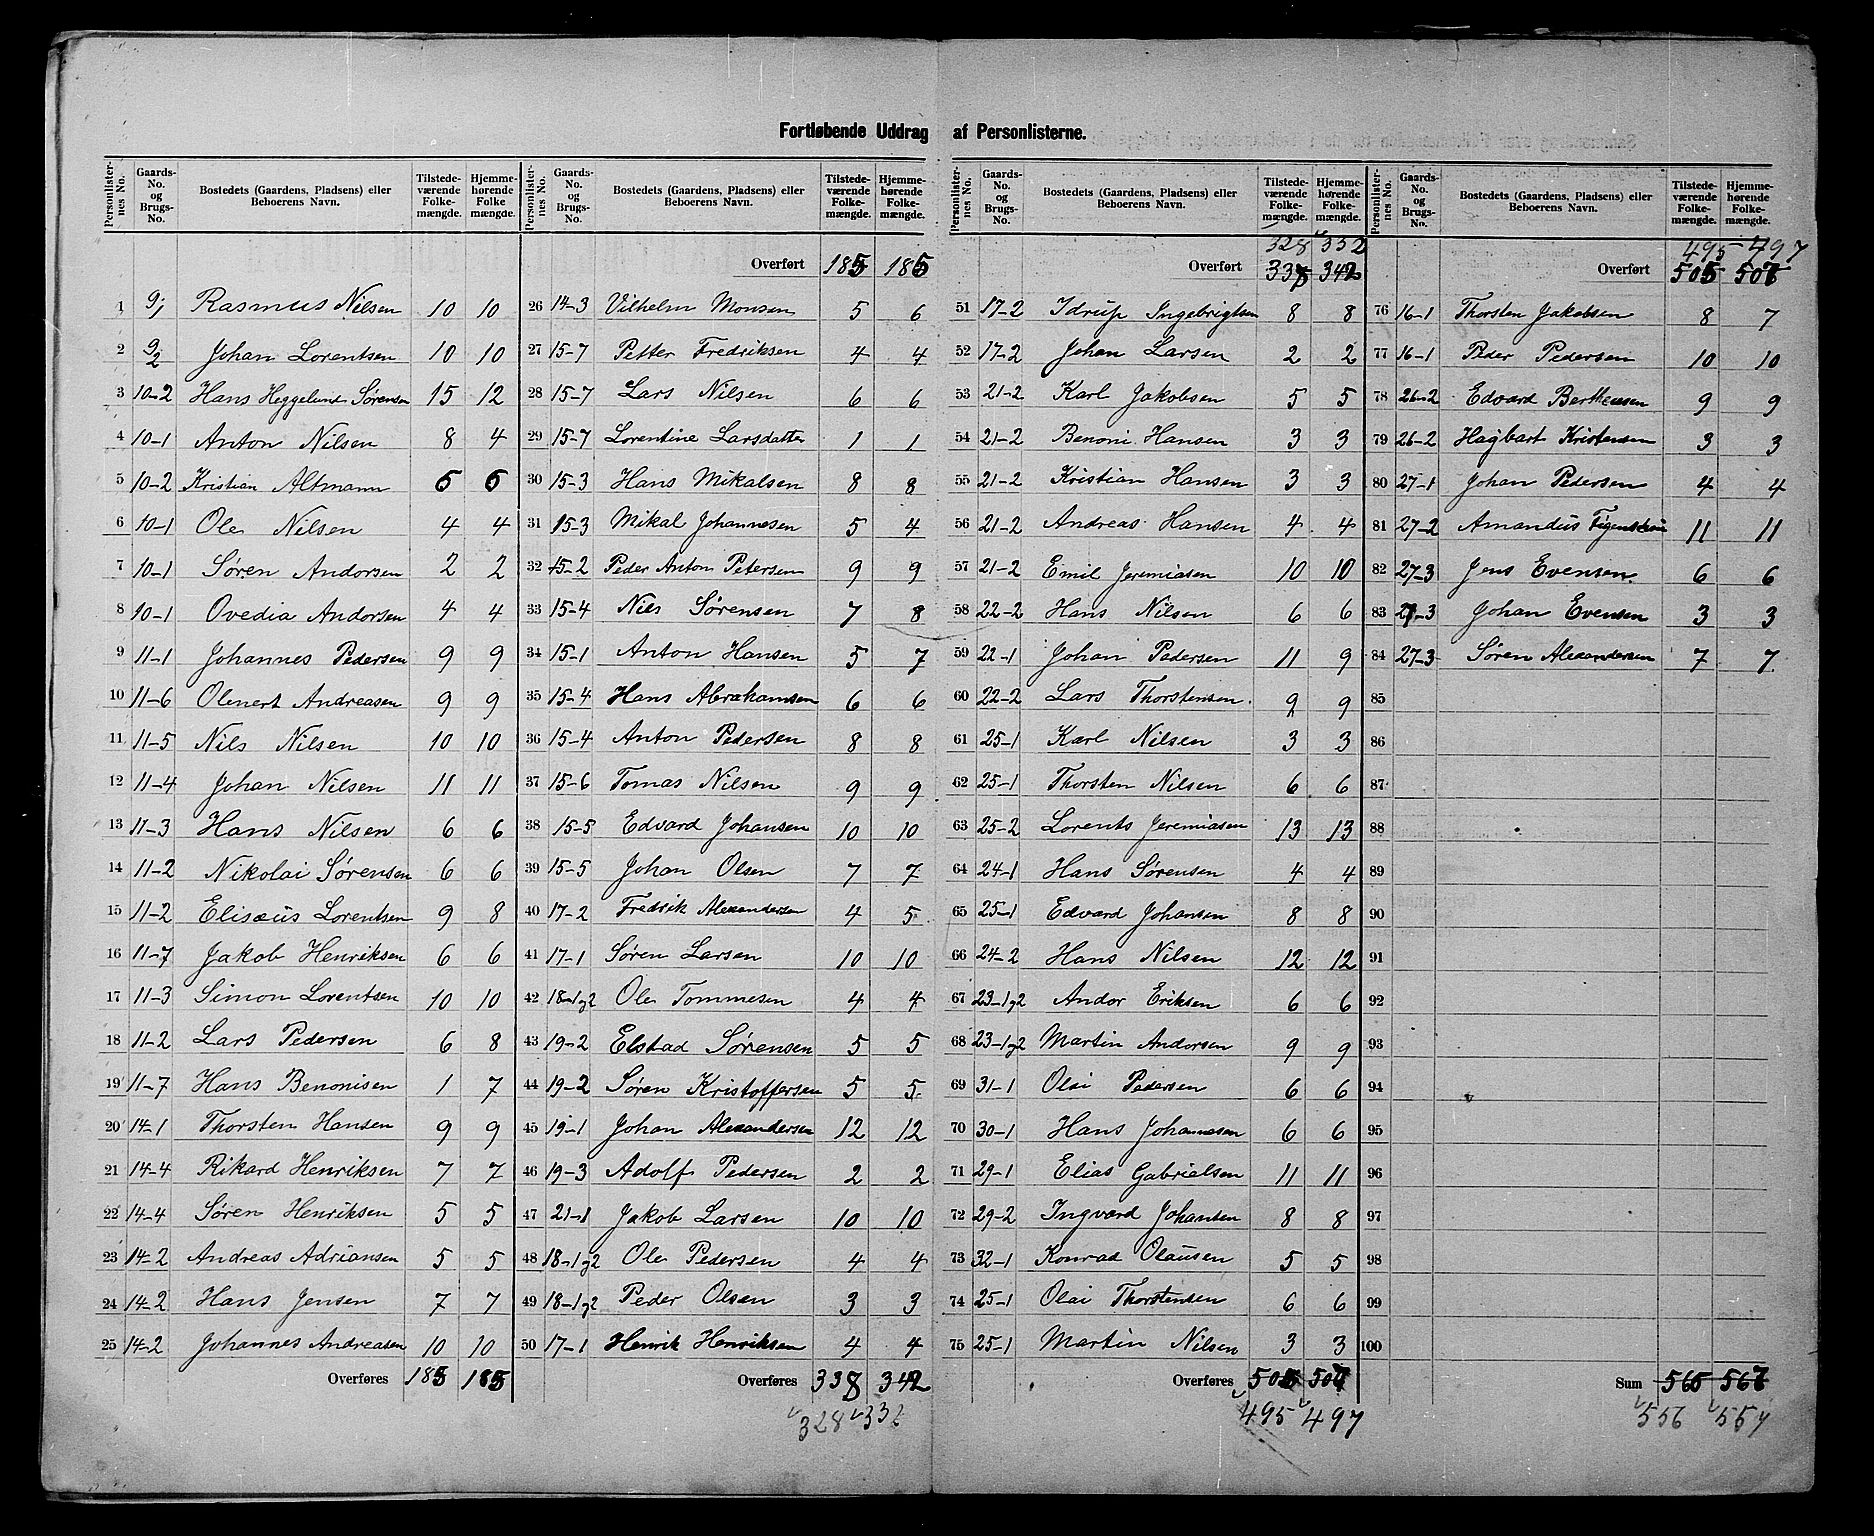 Fortløbende Uddrag af Personlisterne.
Personlister-nes No. | Gaards-No. og Brugs-No. | Bostedets (Gaardens, Pladsens) eller Beboerens Navn. | Tilstede-værende Folke-mængde. | Hjemme-hørende Folke mængde.
1 9,1 Rasmus Nilsen 10 10
2 9,2 Johan Lorentsen 10 10
3 10-2 Hans Heggelund Sørensen 15 12
4 10-1 Anton Nilsen 8 4
5 10-2 Kristian Altmann 6 6
6 10-1 Ole Nilsen 4 4
7 10-1 Søren Andorsen 2 2
8 10-1 Ovedia Andorsen 4 4
9 11-1 Johannes Pedersen 9 9
10 11-6 Olenert Andreasen 9 9
11 11-5 Nils Nilsen 10 10
12 11-4 Johan Nilsen 11 11
13 11-3 Hans Nilsen 6 6
14 11-2 Nikolai Sørensen 6 6
15 11-2 Elisæus Lorentsen 9 8
16 11-7 Jakob Henriksen 6 6
17 11-3 Simon Lorentsen 10 10
18 11-2 Lars Pedersen 6 8
19 11-7 Hans Benonisen 1 7
20 14-1 Thorsten Hansen 9 9
21 14-4 Rikard Henriksen 7 7
22 14-4 Søren Henriksen 5 5
23 14-2 Andreas Adriansen 5 5
24 14-2 Hans Jensen 7 7
25 14-2 Johannes Andreasen 10 10
Overføres 185 185
Personlister-nes No. | Gaards-No. og Brugs-No. | Bostedets (Gaardens, Pladsens) eller Beboerens Navn. | Tilstede-værende Folke-mængde. | Hjemme-hørende Folke-mængde.
Overført 185 185
26 14-3 Vilhelm Monsen 5 6
27 15-7 Petter Fredriksen 4 4
28 15-7 Lars Nilsen 6 6
29 15-7 Lorentine Larsdatter 1 1
30 15-3 Hans Mikalsen 8 8
31 15-3 Mikal Johannesen 5 4
32 15-2 Peder Anton Petersen 9 9
33 15-4 Nils Sørensen 7 8
34 15-1 Anton Hansen 5 7
35 15-4 Hans Abrahamsen 6 6
36 15-4 Anton Pedersen 8 8
37 15-6 Tomas Nilsen 9 9
38 15-5 Edvard Johansen 10 10
39 15-5 Johan Olsen 7 7
40 17-2 Fredrik Alexandersen 4 5
41 17-1 Søren Larsen 10 10
42 18-1og2 Ole Tommesen 4 4
43 19-2 Elstad Sørensen 5 5
44 19-2 Søren Kristoffersen 5 5
45 19-1 Johan Alexandersen 12 12
46 19-3 Adolf Pedersen 2 2
47 21-1 Jakob Larsen 10 10
48 18-1og2 Ole Pedersen 4 4
49 18-1og2 Peder Olsen 3 3
50 17-1 Henrik Henriksen 4 4
Overføres 338 342
328 332
Personlister-nes No. | Gaards-No. og Brugs-No. | Bostedets (Gaardens, Pladsens) eller Beboerens Navn. | Tilstede-værende Folke-mængde. | Hjemme-hørende Folke-mængde.
328 332
Overført 338 342
51 17-2 Idrup Ingebrigtsen 8 8
52 17-2 Johan Larsen 2 2
53 21-2 Karl Jakobsen 5 5
54 21-2 Benoni Hansen 3 3
55 21-2 Kristian Hansen 3 3
56 21-2 Andreas Hansen 4 4
57 21-2 Emil Jeremiasen 10 10
58 22-2 Hans Nilsen 6 6
59 22-1 Johan Pedersen 11 9
60 22-2 Lars Thorstensen 9 9
61 25-1 Karl Nilsen 3 3
62 25-1 Thorsten Nilsen 6 6
63 25-2 Lorents Jeremiasen 13 13
64 24-1 Hans Sørensen 4 4
65 25-1 Edvard Johansen 8 8
66 24-2 Hans Nilsen 12 12
67 23-1og2 Andor Eriksen 6 6
68 23-1og2 Martin Andorsen 9 9
69 31-1 Olai Pedersen 6 6
70 30-1 Hans Johannesen 6 6
71 29-1 Elias Gabrielsen 11 11
72 29-2 Ingvard Johansen 8 8
73 32-1 Konrad Olausen 5 5
74 25-1 Olai Thorstensen 6 6
75 25-1 Martin Nilsen 3 3
Overføres 505 507
495 497
Personlister-nes No. | Gaards-No. og Brugs-No. | Bostedets (Gaardens, Pladsens) eller Beboerens Navn. | Tilstede-værende Folke-mængde. | Hjemme-hørende Folke-mængde.
495 497
Overført 505 507
76 16-1 Thorsten Jakobsen 8 7
77 16-1 Peder Pedersen 10 10
78 26-2 Edvard Bertheusen 9 9
79 26-2 Hagbart Kristensen 3 3
80 27-1 Johan Pedersen 4 4
81 27-2 Amandus Figenschou 11 11
82 27-3 Jens Evensen 6 6
83 27-3 Johan Evensen 3 3
84 27-3 Søren Alexandersen 7 7
85
86
87
88
89
90
91
92
93
94
95
96
97
98
99
100
Sum 565 567
556 557